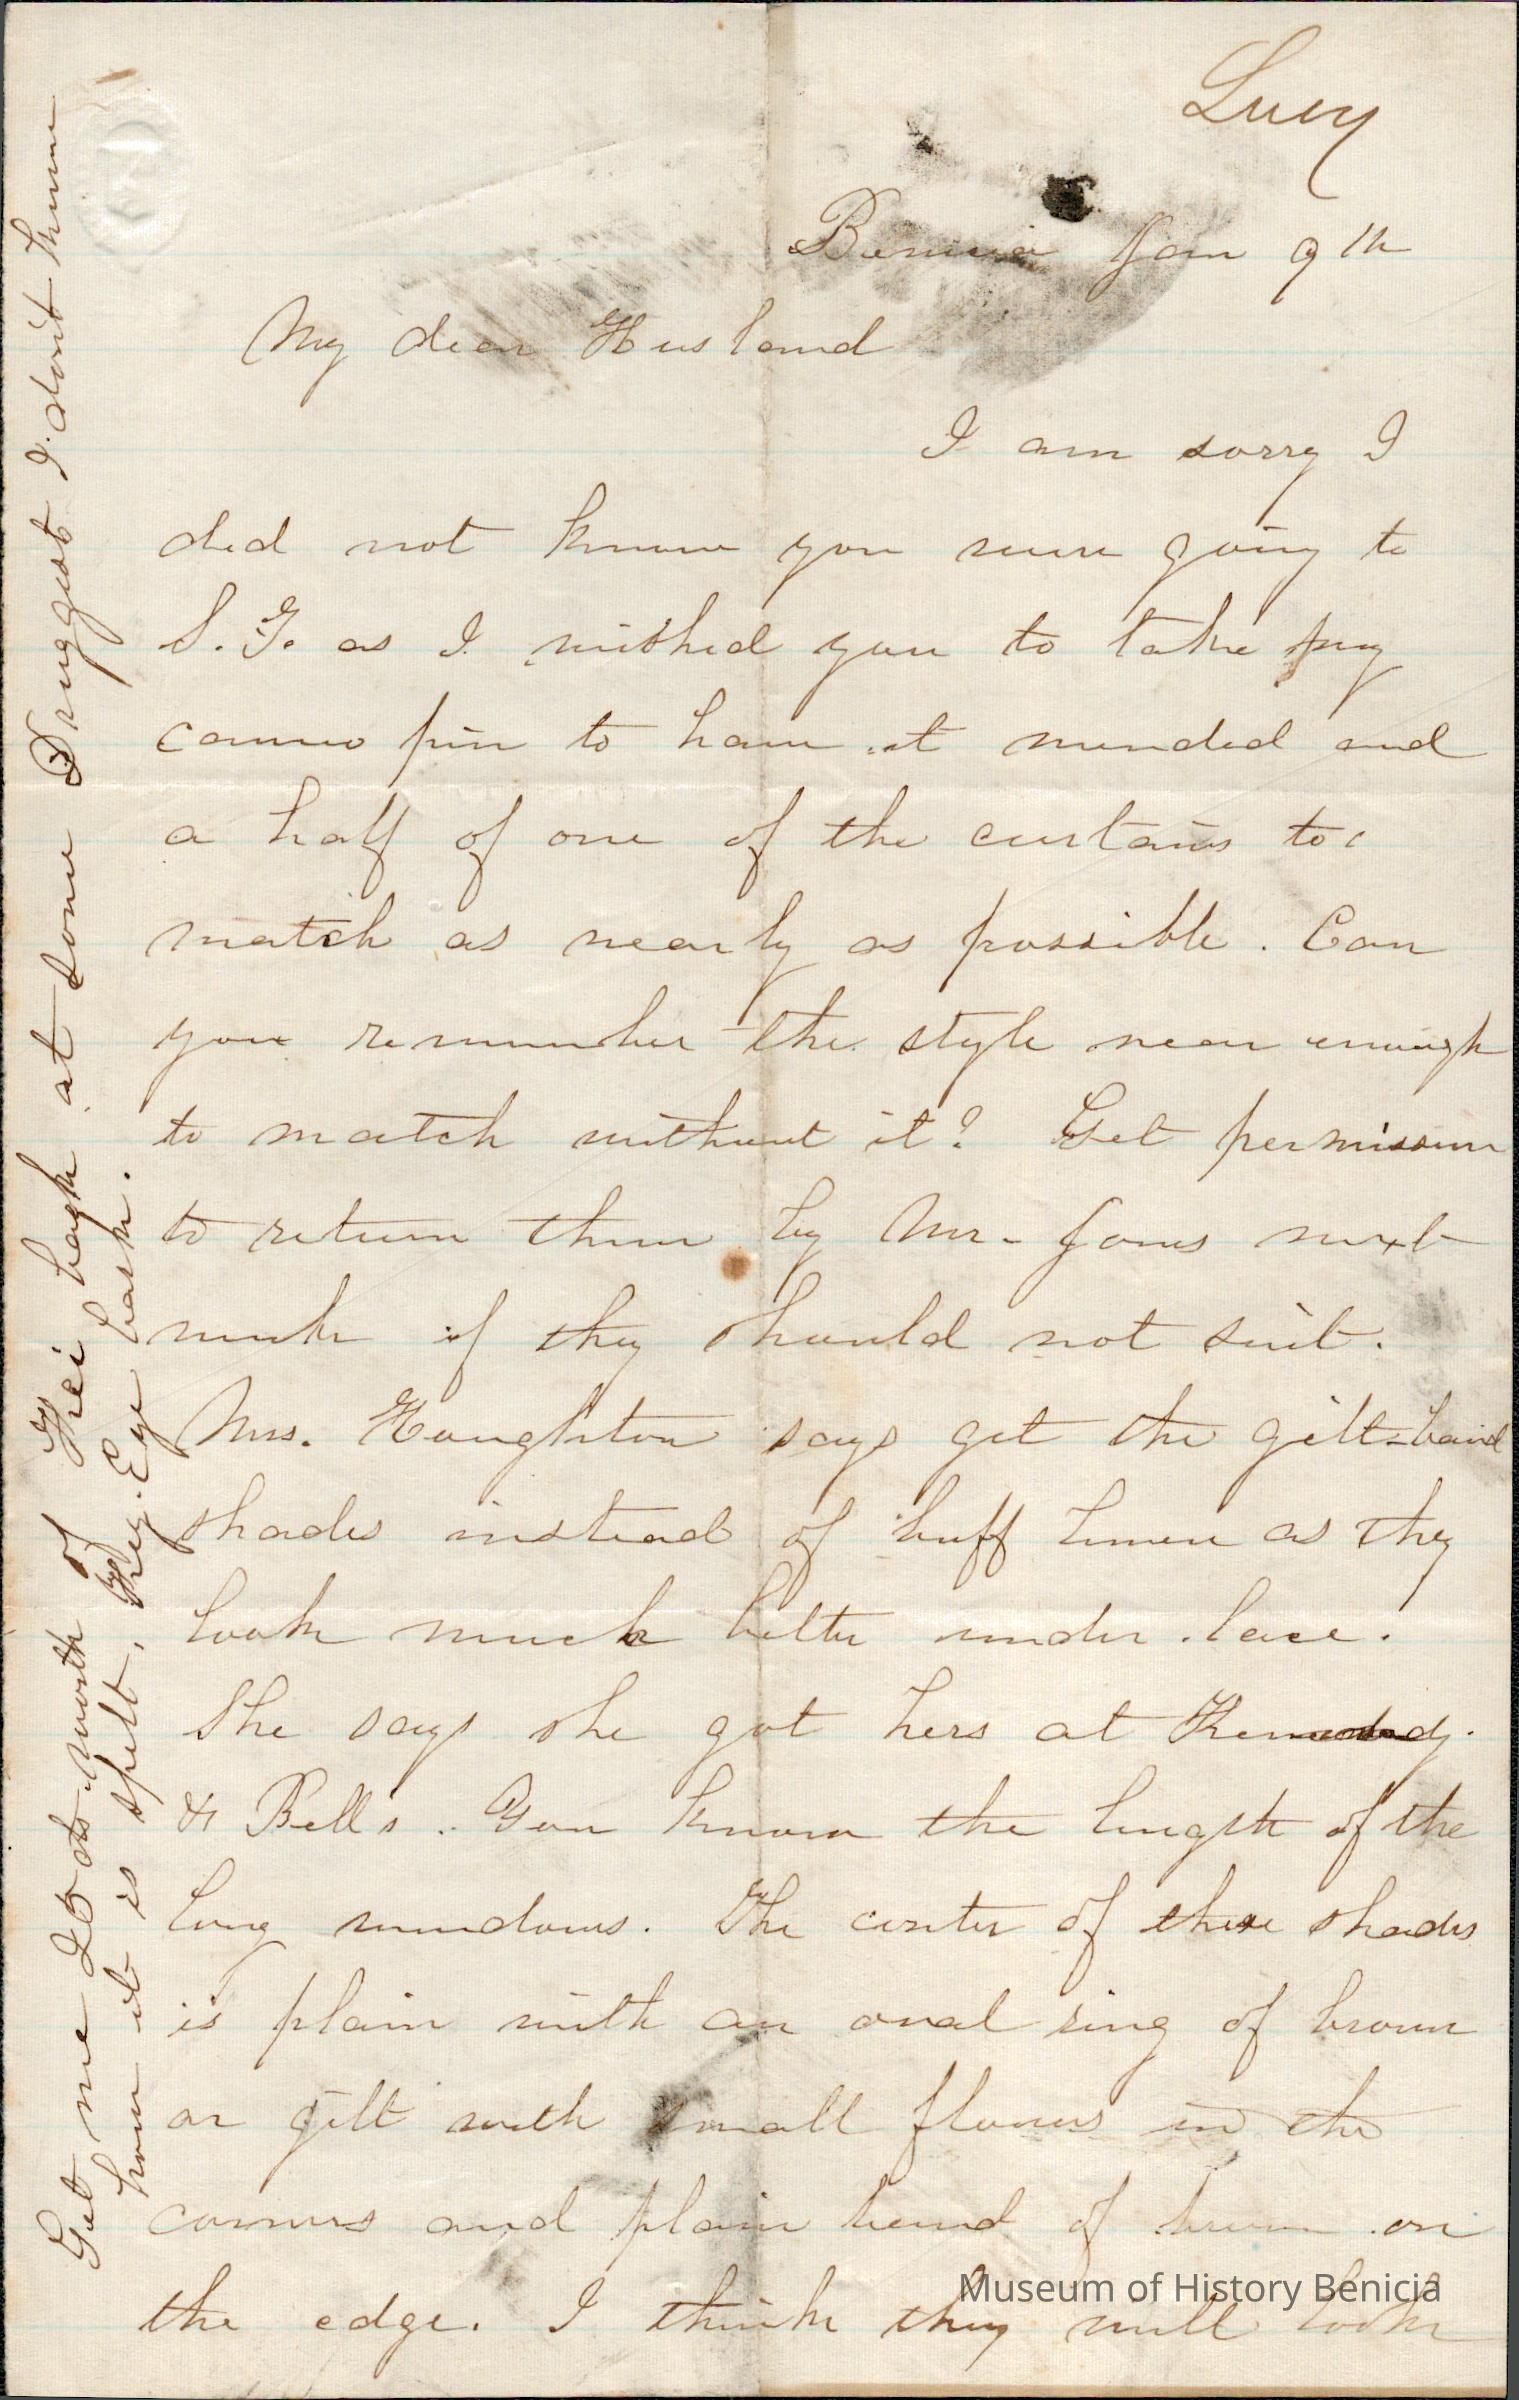 Lucy
Benicia Jan 9th
My dear Husband
I am sorry I
did not know you were going to
S. F. as I wished you to take my
cameo pin to have it mended and
a half of one of the curtains to
match as nearly as possible. Can
you remember the style near enough
to match without it? Get permission
to return them by Mr. Jones next
week if they should not suit.
Mrs. Houghton says get the gilt-band
shades instead of buff linen as they
look much better under lace.
She says she got hers at Kennedy
& Bell's. You know the length of the
long windows. The center of these shades
is plain with an oval ring of brown
or gilt with small flowers in the
corners and plain band of brown on
the edge. I think they will look
Get me 20 cts worth of at some Druggist I don't know
how it is spelt. Key. Eye bark.
Museum of History Benicia